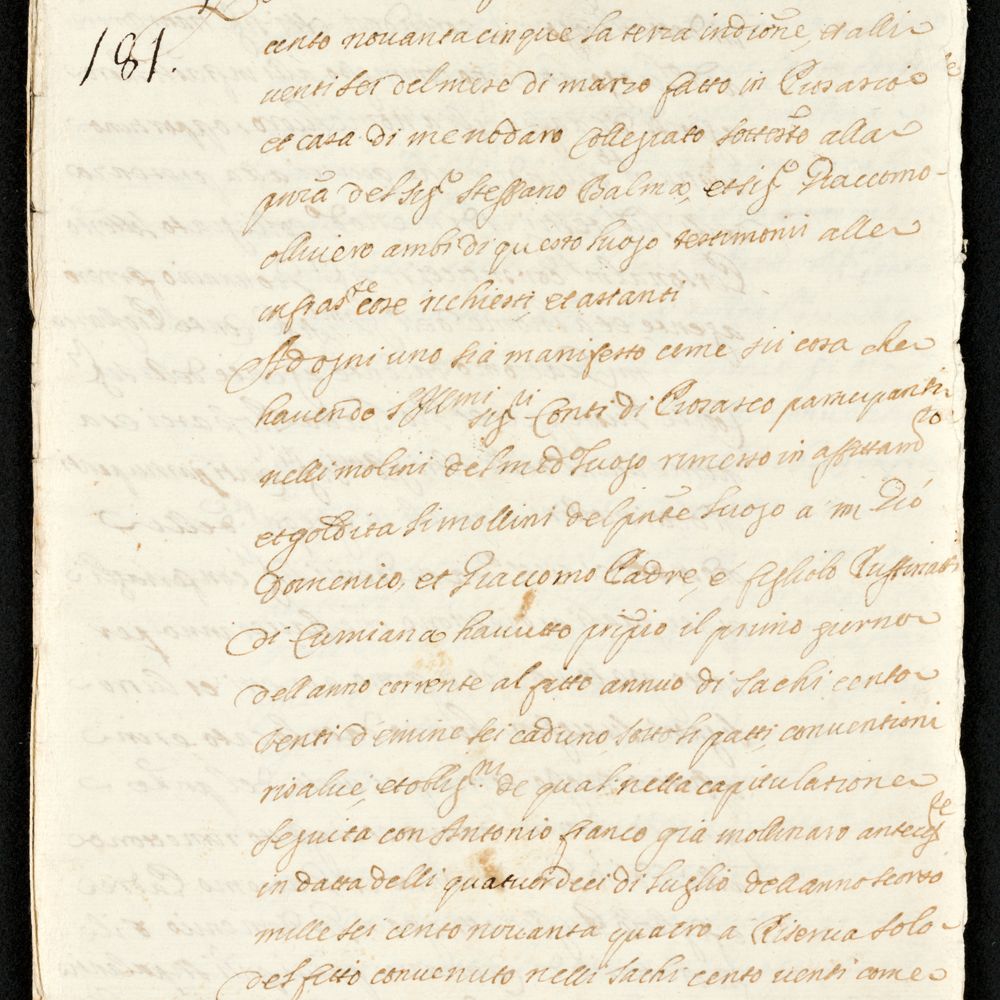 181.
cento novanta cinque la terza indióne, et alli
venti sei del mese di marzo fatto in Piosasco
et casa di me nodaro Collegiato sottto alla
pnza del sigr Steffano Balma, et sigr Giaccomo
olliviero ambi di questo luogo testimonii alle
infraste cose richiesti, et astanti
Ad ogni uno sia manifesto come sii cosa che
havendo sigri Conti di Piosasco partecipanti
nelli molini del medo luogo rimesso in affittamto
et goldita li mollini del pnte luogo a mr Gio
Domenico, et Giaccomo Padre, e figliolo Ruffinatti
di Cumiana havutto pripio il primo giorno
dell anno corrente al fitto annuo di sachi cento
venti d emine sei caduno, sotto li patti, conventioni
risalve, et obligmi de quai nella capitulatione
seguita con Antonio franco già mollinaro antecete
in datta delli quatuordeci di luglio dell anno scorso
mille sei cento novanta quatro a Riserva solo
del fitto convenuto nelli sachi cento venti come